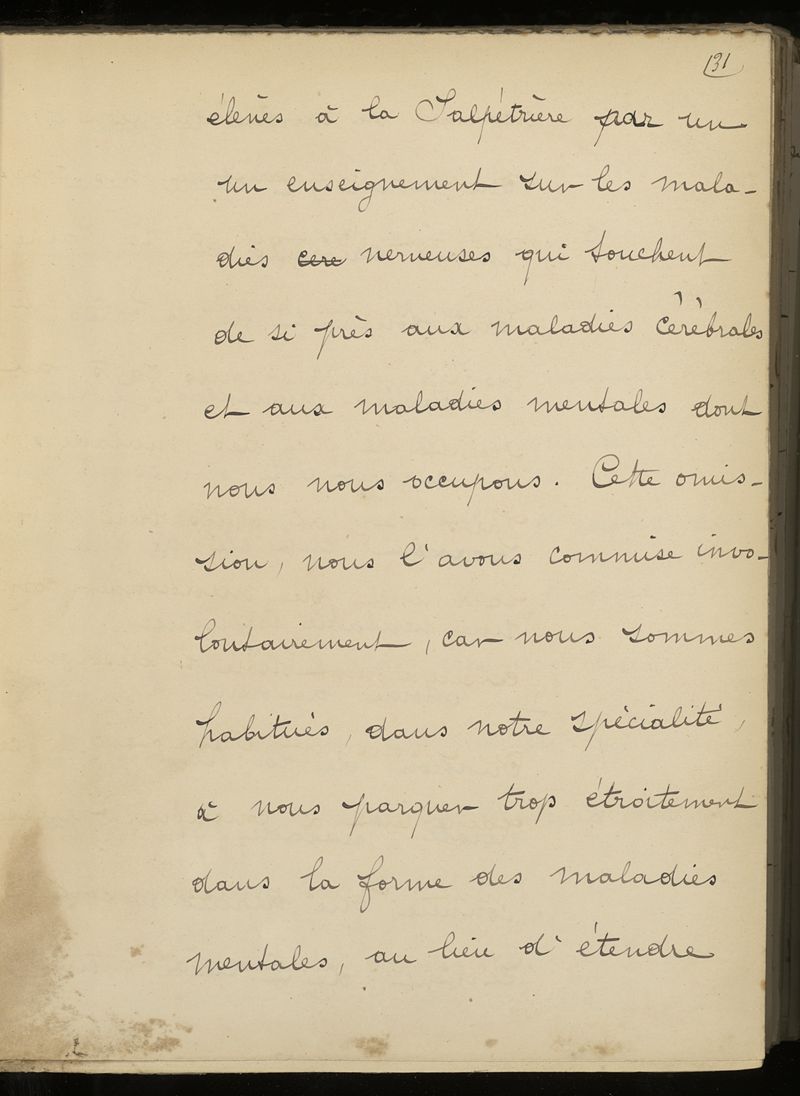 131
élevés à la Salpétrière par un
un enseignement sur les mala-
dies cere nerveuses qui touchent
de si près aux maladies cérébrales
et aux maladies mentales dont
nous nous occupons. Cette omis-
sion, nous l'avons commise invo-
lontairement, car nous sommes
habitués, dans notre spécialité,
à nous parquer trop étroitement
dans la forme des maladies
mentales, au lieu d'étendre